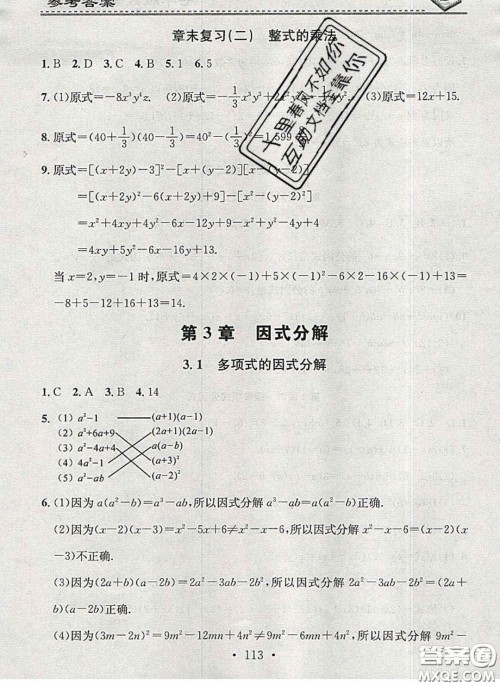 参考答案
章末复习(二) 整式的乘法
1. B 2. D 3. C 4. B 5. 1 6. 5
7. (1)原式=-8x³y⁴z. (2)原式=-1/3x³y² (3)原式=12x+15.
8. 原式=(40+1/3)(40-1/3)=40²-(1/3)²=1 599
9. 原式=[(x+2y)-3]²-[x+(y-2)][x-(y-2)]
=[(x+2y)-3]²-[x²-(y-2)²]
=x²+4xy+4y²-6x-12y+9-x²+y²-4y+4
=4xy+5y²-6x-16y+13.
当 x=2,y=-1 时,原式=4×2×(-1)+5×(-1)²-6×2-16×(-1)+13=
-8+5-12+16+13=14.
十里春风不如你
互助文档至靠你
第 3 章 因式分解
3.1 多项式的因式分解
1. C 2. A 3. B 4. 14
5. (1) a²-1 (a+1)(a-1)
(2) a²+6a+9 (2a+1)(2a-1)
(3) 4a²-1 a(a-b)
(4) (a+3)²
(5) a²-ab
6. (1)因为 a(a²-b)=a³-ab,所以因式分解 a³-ab=a(a²-b)正确.
(2)因为(x-2)(x-3)=x²-5x+6≠x²-6,所以因式分解 x²-6=(x-2)(x
-3)不正确.
(3)因为(2a+b)(a-2b)=2a²-3ab-2b²,所以因式分解 2a²-3ab-2b²=
(2a+b)(a-2b)正确.
(4)因为(3m-2n)²=9m²-12mn+4n²≠9m²-12mn-4n²,所以因式分解 9m²-
· 113 ·
答案圈
MXQE.COM